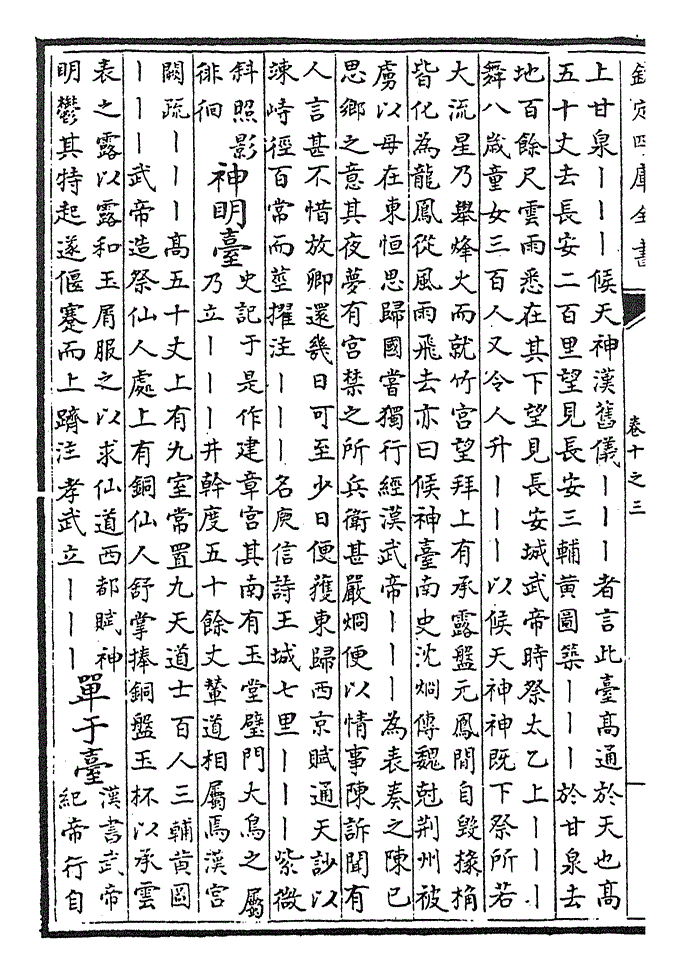 欽定四庫全書
卷十之三
上甘泉｜｜｜候天神漢舊儀｜｜｜者言此臺髙通於天也髙
五十丈去長安二百里望見長安三輔黄圖築｜｜｜於甘泉去
地百餘尺雲雨悉在其下望見長安城武帝時祭太乙上｜｜｜
舞八歳童女三百人又令人升｜｜｜以候天神神既下祭所若
大流星乃舉烽火而就竹宫望拜上有承露盤元鳳間自毀椽桷
皆化為龍鳳從風雨飛去亦曰候神臺南史沈烱傳魏尅荆州被
虜以母在東恒思歸國嘗獨行經漢武帝｜｜｜為表奏之陳已
思鄉之意其夜夢有宫禁之所兵衛甚嚴烱便以情事陳訴聞有
人言甚不惜放卿還幾日可至少日便獲東歸西京賦通天訬以
竦峙徑百常而莖擢注｜｜｜名庾信詩王城七里｜｜｜紫微
斜照影
徘徊
神明臺
史記于是作建章宫其南有玉堂璧門大鳥之屬
乃立｜｜｜井幹度五十餘丈輦道相屬焉漢宫
闕疏｜｜｜髙五十丈上有九室常置九天道士百人三輔黄圖
｜｜｜武帝造祭仙人處上有銅仙人舒掌捧銅盤玉杯以承雲
表之露以露和玉屑服之以求仙道西都賦神
明鬱其特起遂偃蹇而上躋注孝武立｜｜｜
單于臺
漢書武帝
紀帝行自